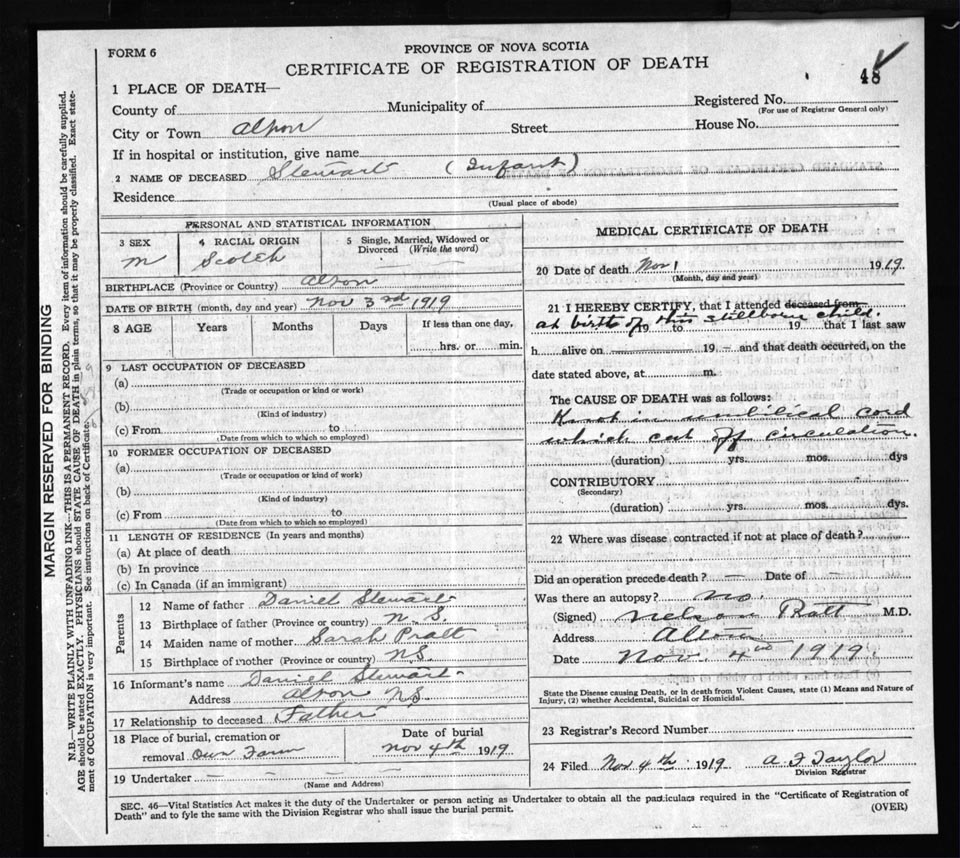 FORM 6
PROVINCE OF NOVA SCOTIA
CERTIFICATE OF REGISTRATION OF DEATH
48
1 PLACE OF DEATH—
County of Municipality of Registered No.
(For use of Registrar General only)
City or Town Alton Street House No.
If in hospital or institution, give name
2 NAME OF DECEASED Stewart (Infant)
Residence
(Usual place of abode)
PERSONAL AND STATISTICAL INFORMATION
3 SEX 4 RACIAL ORIGIN 5 Single, Married, Widowed or Divorced (Write the word)
m Scotch
BIRTHPLACE (Province or Country) Alton
DATE OF BIRTH (month, day and year) Nov 3rd 1919
8 AGE Years Months Days If less than one day,
hrs. or min.
9 LAST OCCUPATION OF DECEASED
(a)
(Trade or occupation or kind or work)
(b)
(Kind of industry)
(c) From to
(Date from which to which so employed)
10 FORMER OCCUPATION OF DECEASED
(a)
(Trade or occupation or kind or work)
(b)
(Kind of industry)
(c) From to
(Date from which to which so employed)
11 LENGTH OF RESIDENCE (In years and months)
(a) At place of death
(b) In province
(c) In Canada (if an immigrant)
Parents
12 Name of father Daniel Stewart
13 Birthplace of father (Province or country) N.S.
14 Maiden name of mother Sarah Pratt
15 Birthplace of mother (Province or country) NS.
16 Informant's name Daniel Stewart
Address Alton NS
17 Relationship to deceased Father
18 Place of burial, cremation or removal Own Farm
Date of burial Nov 4th 1919
19 Undertaker — — — — —
(Name and Address)
MEDICAL CERTIFICATE OF DEATH
20 Date of death Nov 1 1919.
(Month, day and year)
21 I HEREBY CERTIFY, that I attended deceased from
at birth of this stillborn child.
19 to 19 that I last saw
h alive on 19 — and that death occurred, on the
date stated above, at m.
The CAUSE OF DEATH was as follows:
Knot in umbilical cord
which cut off circulation.
(duration) yrs. mos. dys
CONTRIBUTORY
(Secondary)
(duration) yrs. mos. dys.
22 Where was disease contracted if not at place of death?
Did an operation precede death? — Date of —
Was there an autopsy? no.
(Signed) Nelson Pratt M.D.
Address Alton
Date Nov. 4 1919
State the Disease causing Death, or in death from Violent Causes, state (1) Means and Nature of
Injury, (2) whether Accidental, Suicidal or Homicidal.
23 Registrar's Record Number
24 Filed Nov 4th 1919 A F Taylor
Division Registrar
SEC. 46—Vital Statistics Act makes it the duty of the Undertaker or person acting as Undertaker to obtain all the particulars required in the "Certificate of Registration of
Death" and to fyle the same with the Division Registrar who shall issue the burial permit.
(OVER)
MARGIN RESERVED FOR BINDING
N.B.—WRITE PLAINLY WITH UNFADING INK—THIS IS A PERMANENT RECORD. Every item of information should be carefully supplied.
AGE should be stated EXACTLY. PHYSICIANS should STATE CAUSE OF DEATH in plain terms, so that it may be properly classified. Exact state-
ment of OCCUPATION is very important. See instructions on back of Certificate.